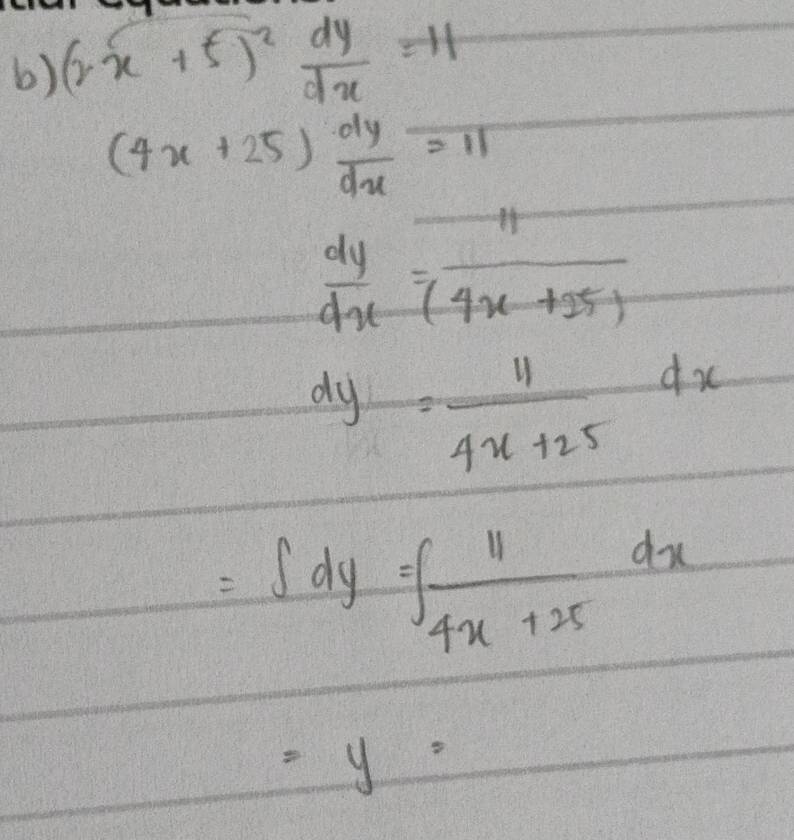 equations.
b) (2x + 5)² dy/dx = 11
(4x + 25) dy/dx = 11
dy/dx = 11/(4x + 25)
dy = 11/4x + 25 dx
= ∫ dy = ∫ 11/4x + 25 dx
= y =